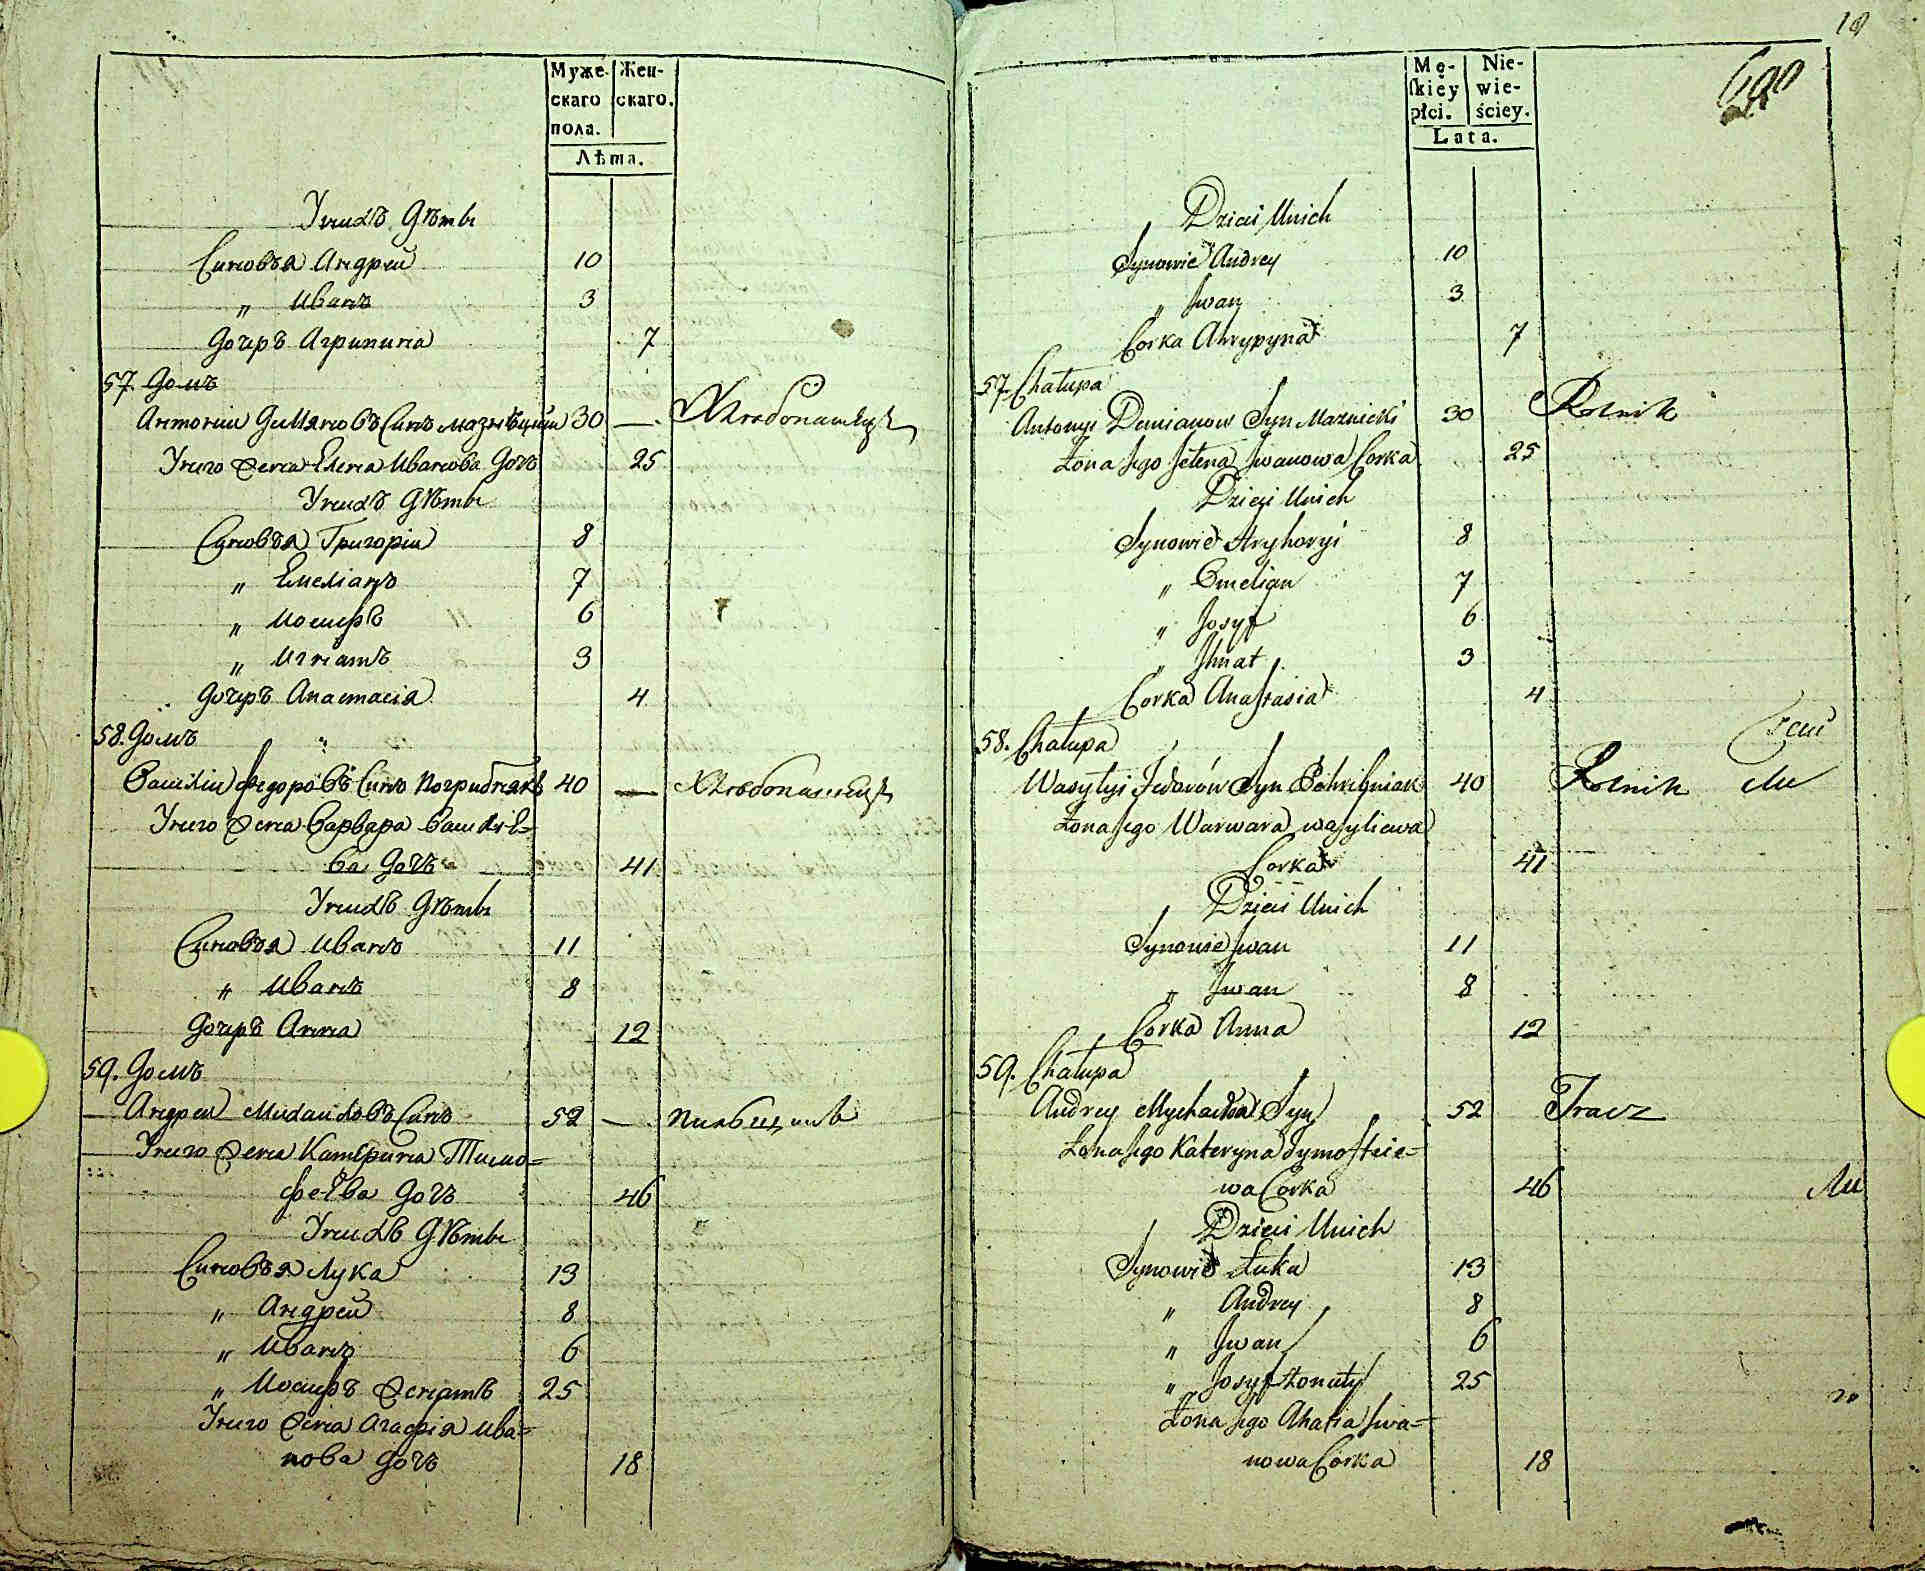 Муже- Жен-
скаго скаго.
пола.
Лѣта.
Унихъ Дѣти
Синовъя Андрей 10
„ Иванъ 3
Дочеръ Агрипина 7
57. Домъ
Антоній Демяновъ Синъ Мазнѣцкій 30 — Хлебопашецъ
Унего Жена Елена Иванова Дочъ 25
Унихъ Дѣти
Синовъя Григорій 8
„ Емеліанъ 7
„ Иосифъ 6
„ Игнатъ 3
Дочеръ Анастасія 4
58. Домъ „
Василій Федоровъ Синъ Погрибнякъ 40 — Хлебопашецъ
Унего Жена Варвара Василіе=
ва Дочъ 41
Унихъ Дѣти
Синовъя Иванъ 11
„ Иванъ 8
Дочеръ Анна 12
59. Домъ
Андрей Михайловъ Синъ 52 — Пильщикъ
Унего Жена Катерина Тимо=
феева Дочъ 46
Унихъ Дѣти
Синовъя Лука 13
„ Андрей 8
„ Иванъ 6
„ Иосифъ Женатъ 25
Унего Жена Агафія Ива=
нова Дочъ 18
19
Mę- Nie-
ſkiéy wie-
płci. ściey.
Lata.
Dzieci Unich
Synowie Andrey 10
„ Jwan 3
Corka Ahrypyna 7
57. Chałupa
Antonyi Demianow Syn Maznicki 30 Rolnik
Żona Jego Jełena Jwanowa Corka 25
Dzieci Unich
Synowie Hryhoryi 8
„ Emelian 7
„ Josyf 6
„ Jhnat 3
Corka Anaſtasia 4
58. Chałupa
Wasylyi Fedorów Syn Pohribniak 40 Rolnik
Żona Jego Warwara Wasyliewa
Corka 41
Dzieci Unich
Synowie Jwan 11
„ Jwan 8
Corka Anna 12
59. Chałupa
Andrey Mychaiłow Syn 52 Tracz
Żona Jego Kateryna Tymoſtie=
wa Corka 46
Dzieci Unich
Synowie Łuka 13
„ Andrey 8
„ Jwan 6
„ Josyf Żonaty 25
Żona Jego Ahafia Jwa=
nowa Corka 18